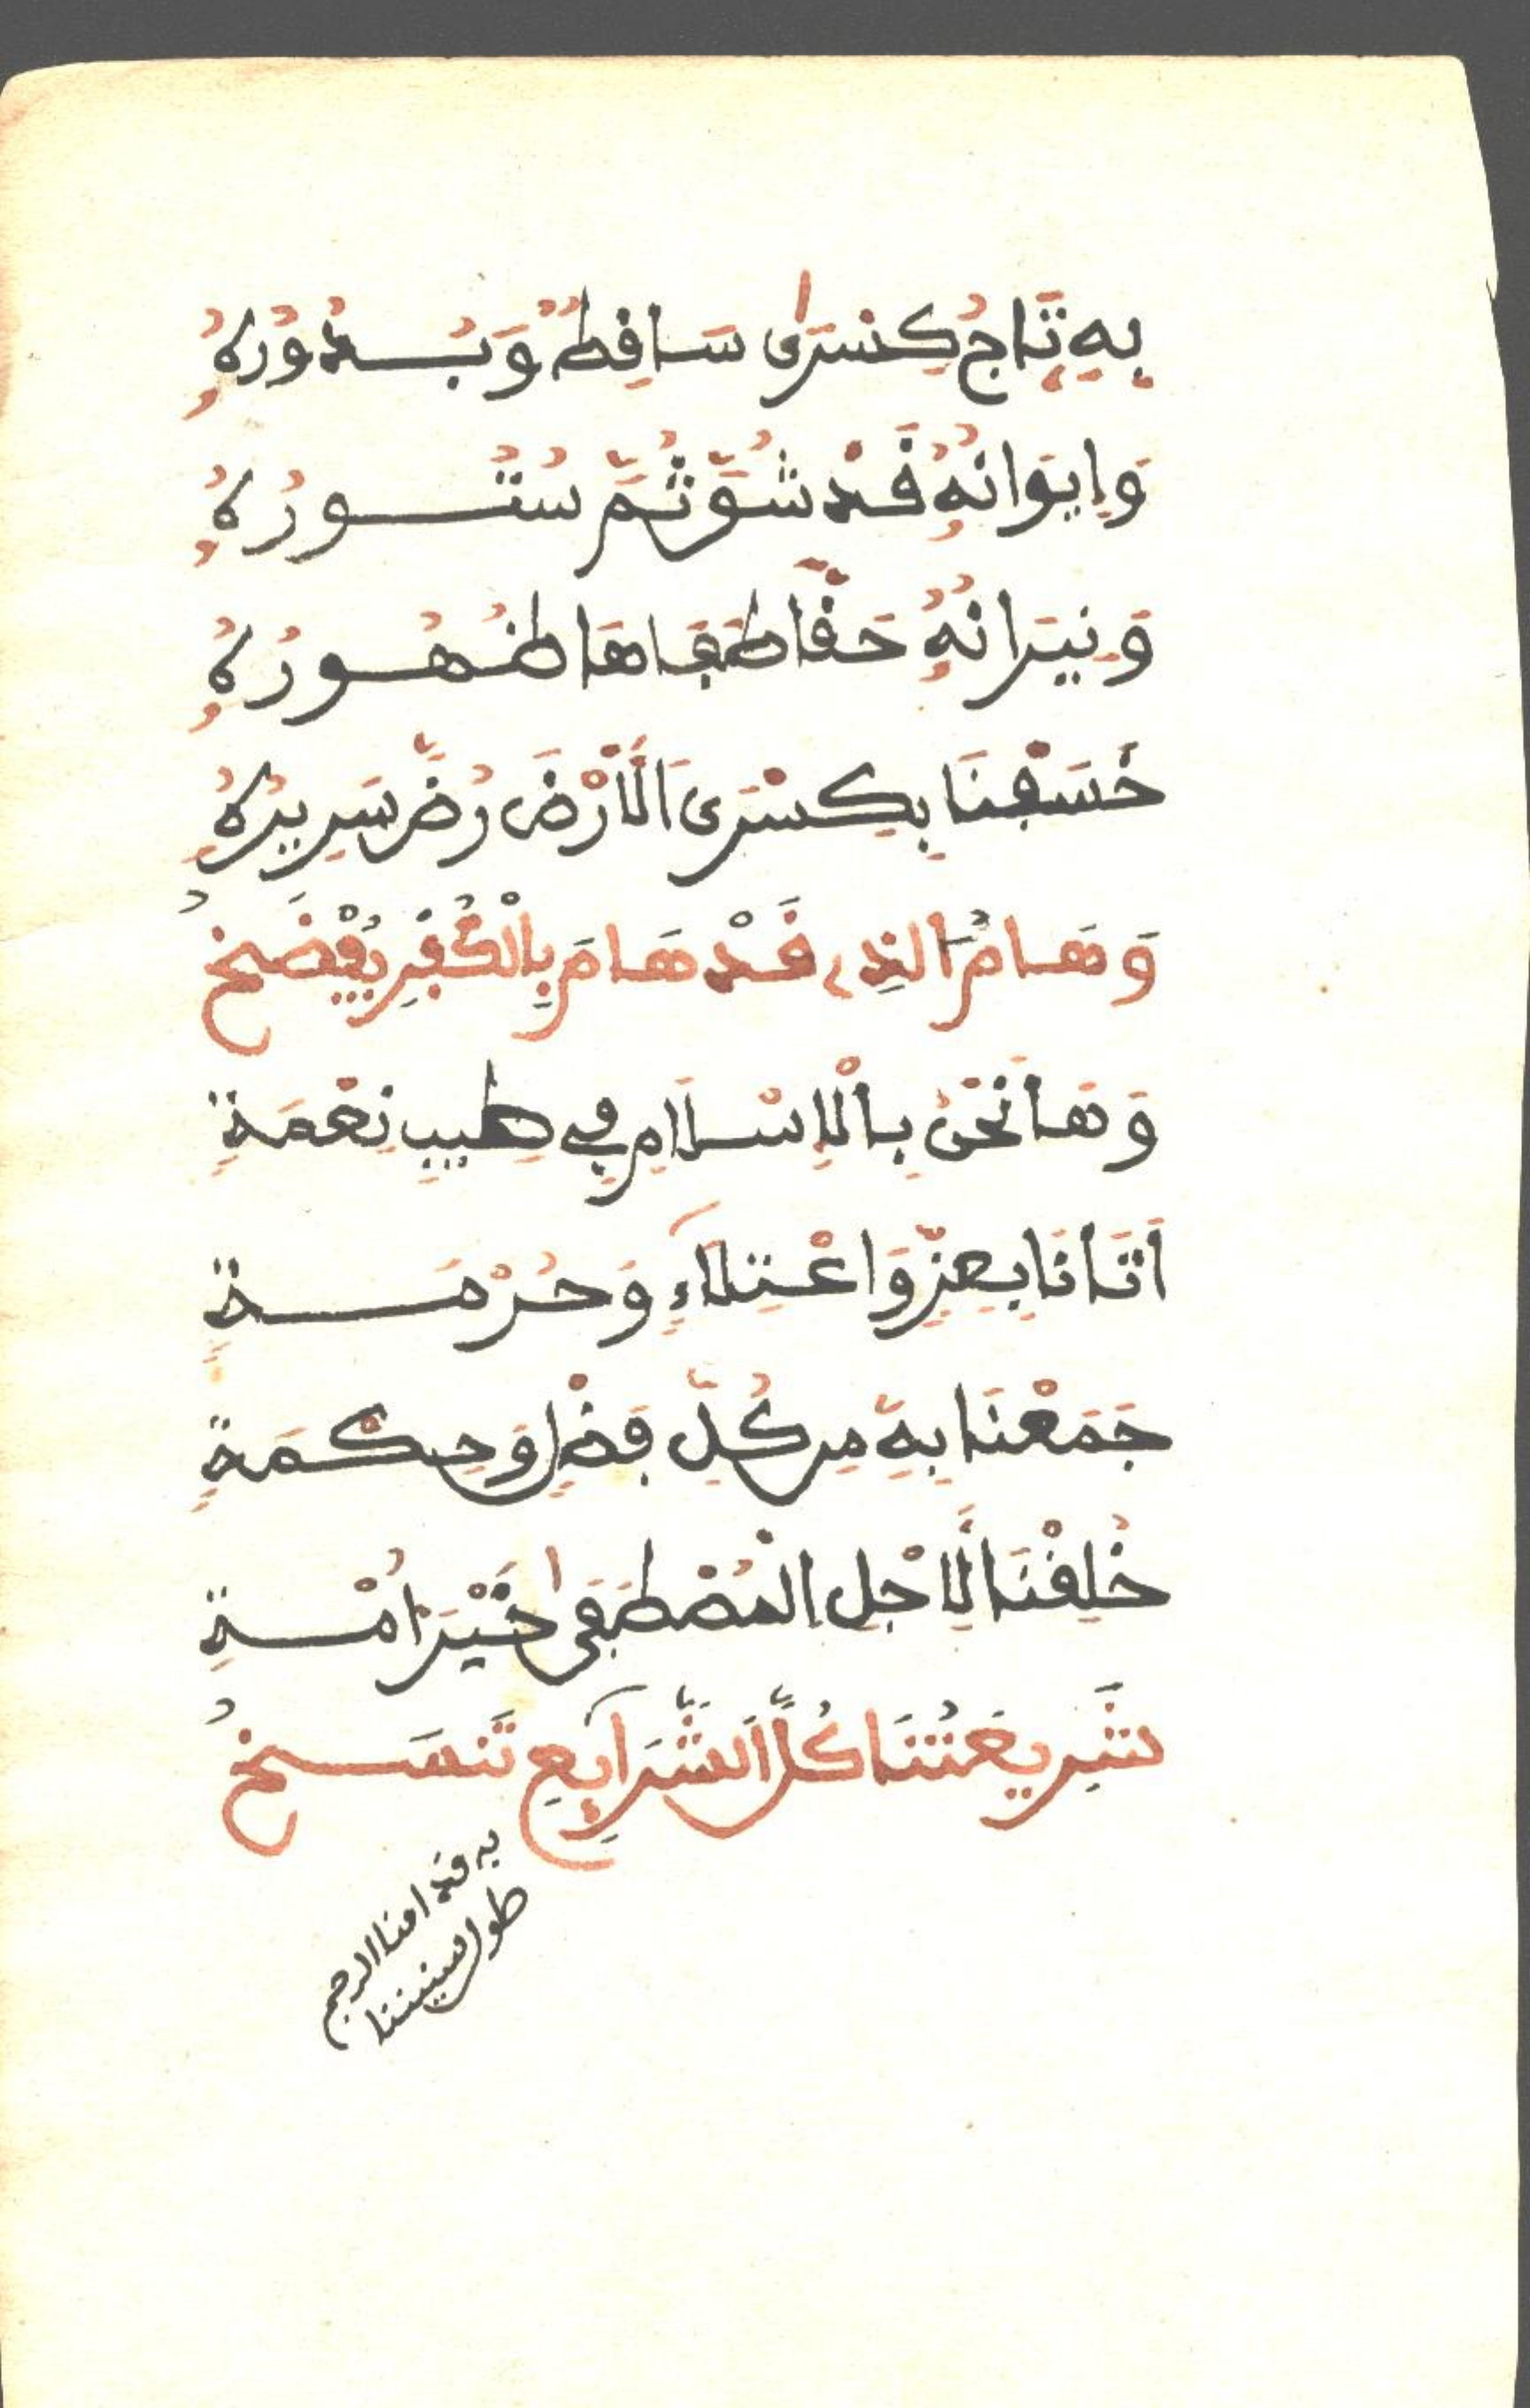 بِهِ تَاجُ كِسْرَى سَاقِطٌ وَبُدُورُهُ
وَإِيوَانُهُ قَدْ شُقَّ ثُمَّ سُتُورُهُ
وَنِيرَانُهُ حَقًّا طَفَاهَا ظُهُورُهُ
خَسَفْنَا بِكِسْرَى الْأَرْضَ رُضَّ سَرِيرُهُ
وَهَامُ الَّذِي قَدْ هَامَ بِالْكُفْرِ يُفْضَخُ
وَهَا نَحْنُ بِالْإِسْلَامِ فِي طِيبِ نِعْمَةٍ
أَتَانَا بِعِزٍّ وَاعْتِلَاءٍ وَحُرْمَةٍ
جَمَعْنَا بِهِ مِن كُلِّ فَضْلٍ وَحِكْمَةٍ
خُلِقْنَا لِأَجْلِ الْمُصْطَفَى خَيْرَ أُمَّةٍ
شَرِيعَتُنَا كُلَّ الشَّرَايِعِ تَنسَخُ
به قد امنا الرجم
طول سنيننا